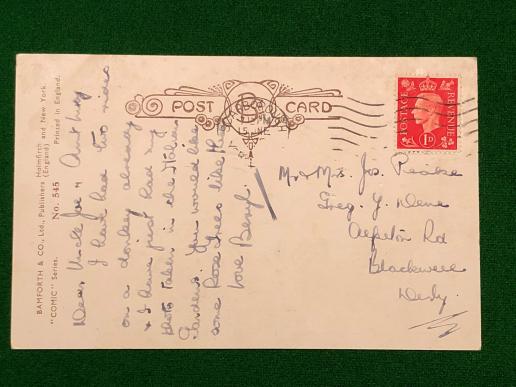 BAMFORTH & CO., Ltd., Publishers Holmfirth (England) and New York.
"COMIC" Series. No. 545 Printed in England.
POST CARD
POSTAGE REVENUE
1D
Dear Uncle Joe & Aunt
I have had two rides
on a donkey already
& I have just had my
photo taken in the Italian
Gardens. You would like
some Rose trees like these
Love Beryl.
Mr & Mrs. Jos. Peake
Alfreton Rd
Blackwell
Derby.